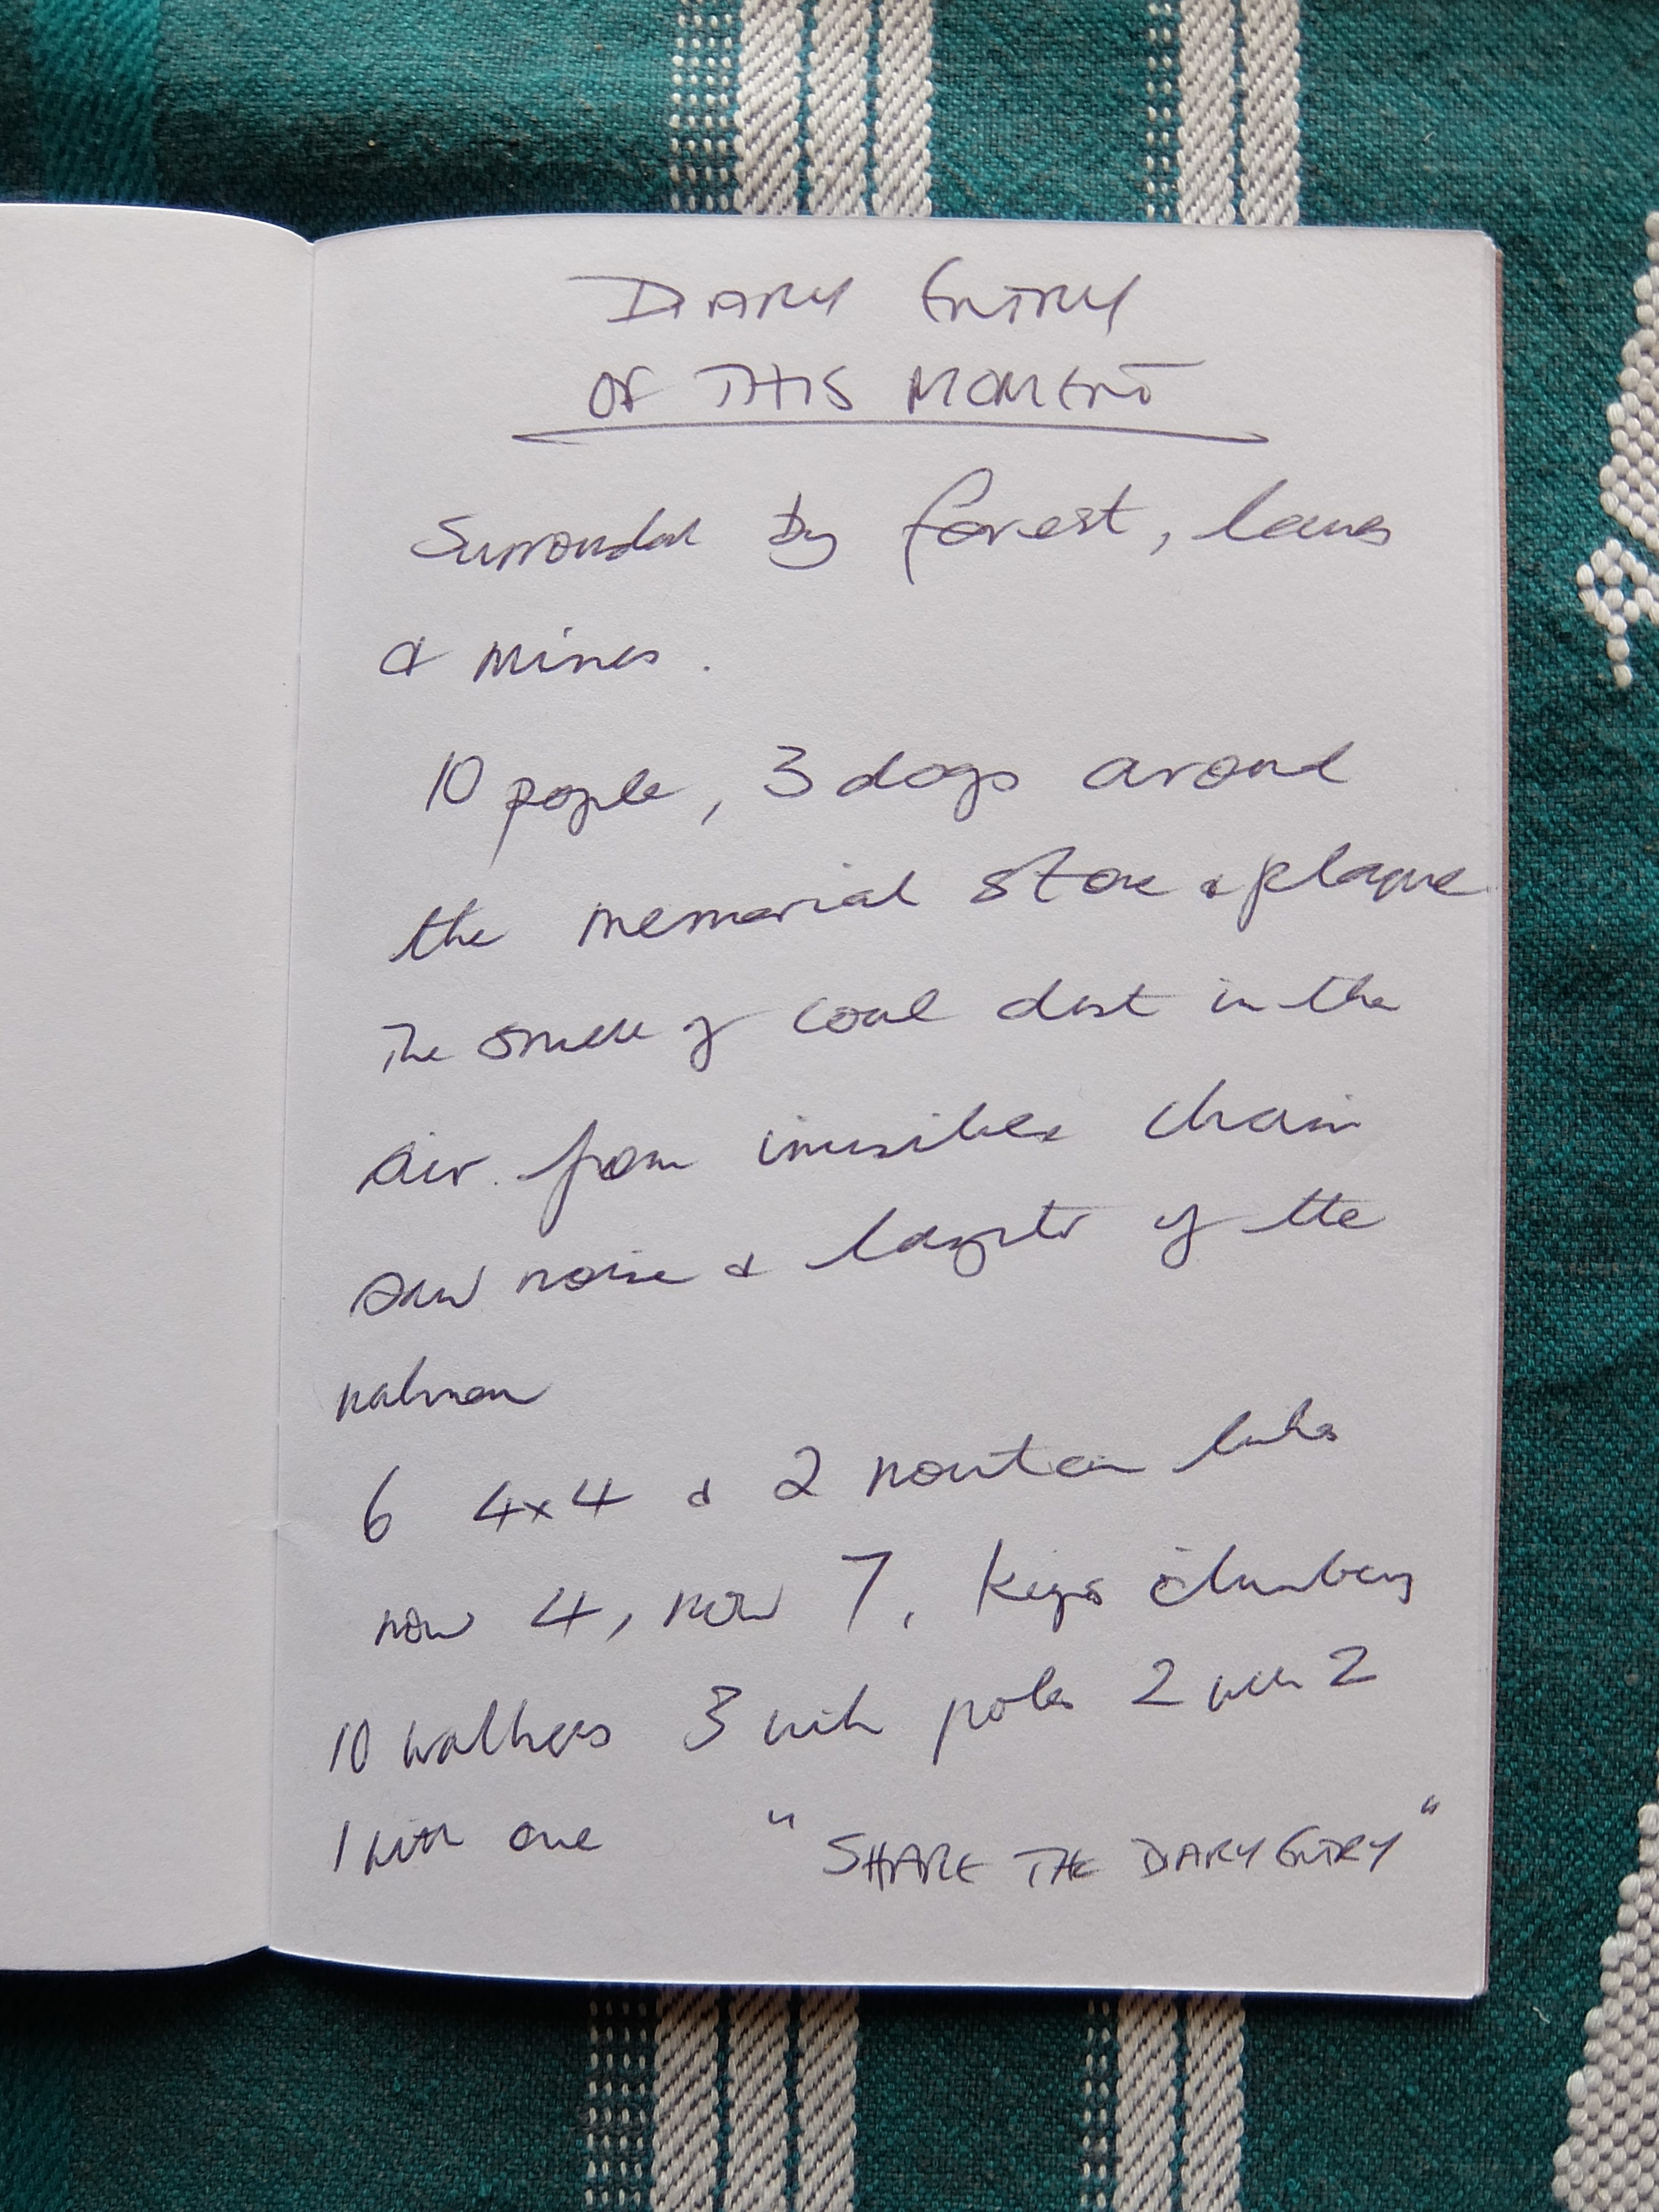 DIARY ENTRY
OF THIS MOMENT
Surrounded by forest, lanes
& mines.
10 people, 3 dogs around
the memorial stone & plaque
The smell of coal dust in the
air. from invisible chain
saw noise & of the
6 4x4 & 2 mountain
now 4, now 7, Keeps climbing
10 walkers 3 with poles 2 with 2
1 with one "SHARE THE DIARY ENTRY"